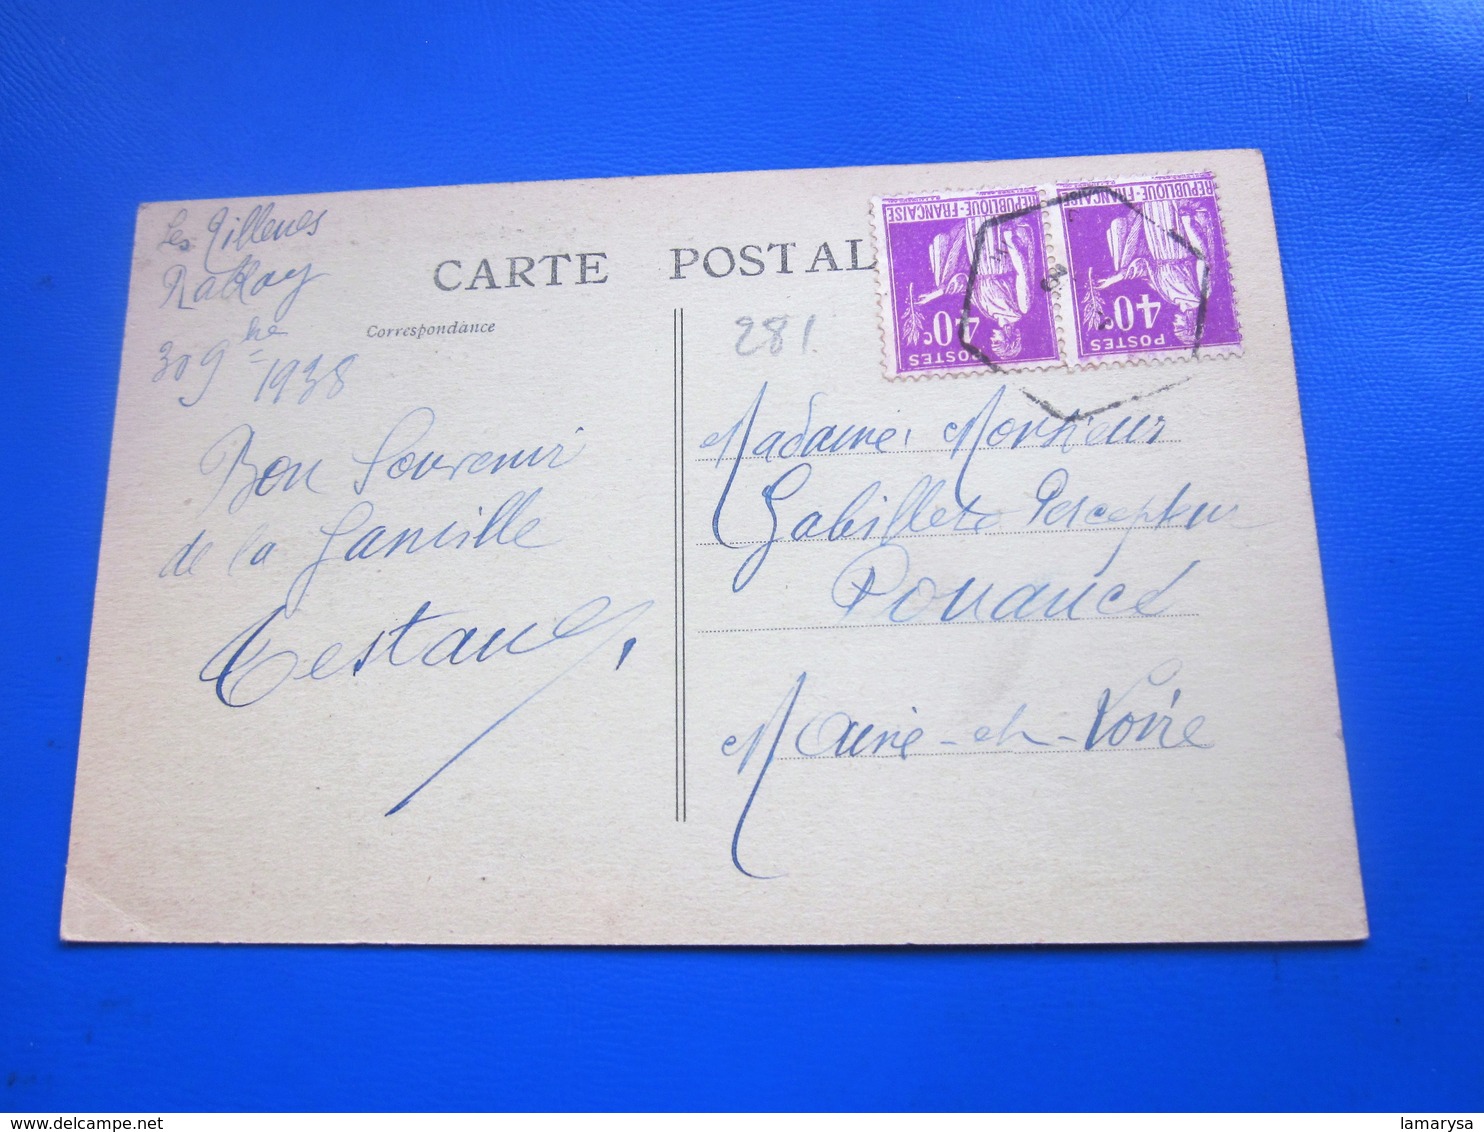 Les Tilleues
Rablay
30 9bre 1938
CARTE POSTAL
Correspondance
281.
RÉPUBLIQUE-FRANÇAISE
40c
POSTES
RÉPUBLIQUE-FRANÇAISE
40c
POSTES
Bon Souvenir
de la Famille
Madame, Monsieur
Gabillete Percepteur
Pouancé
Maine-et-Loire
delcampe.net
lamarysa